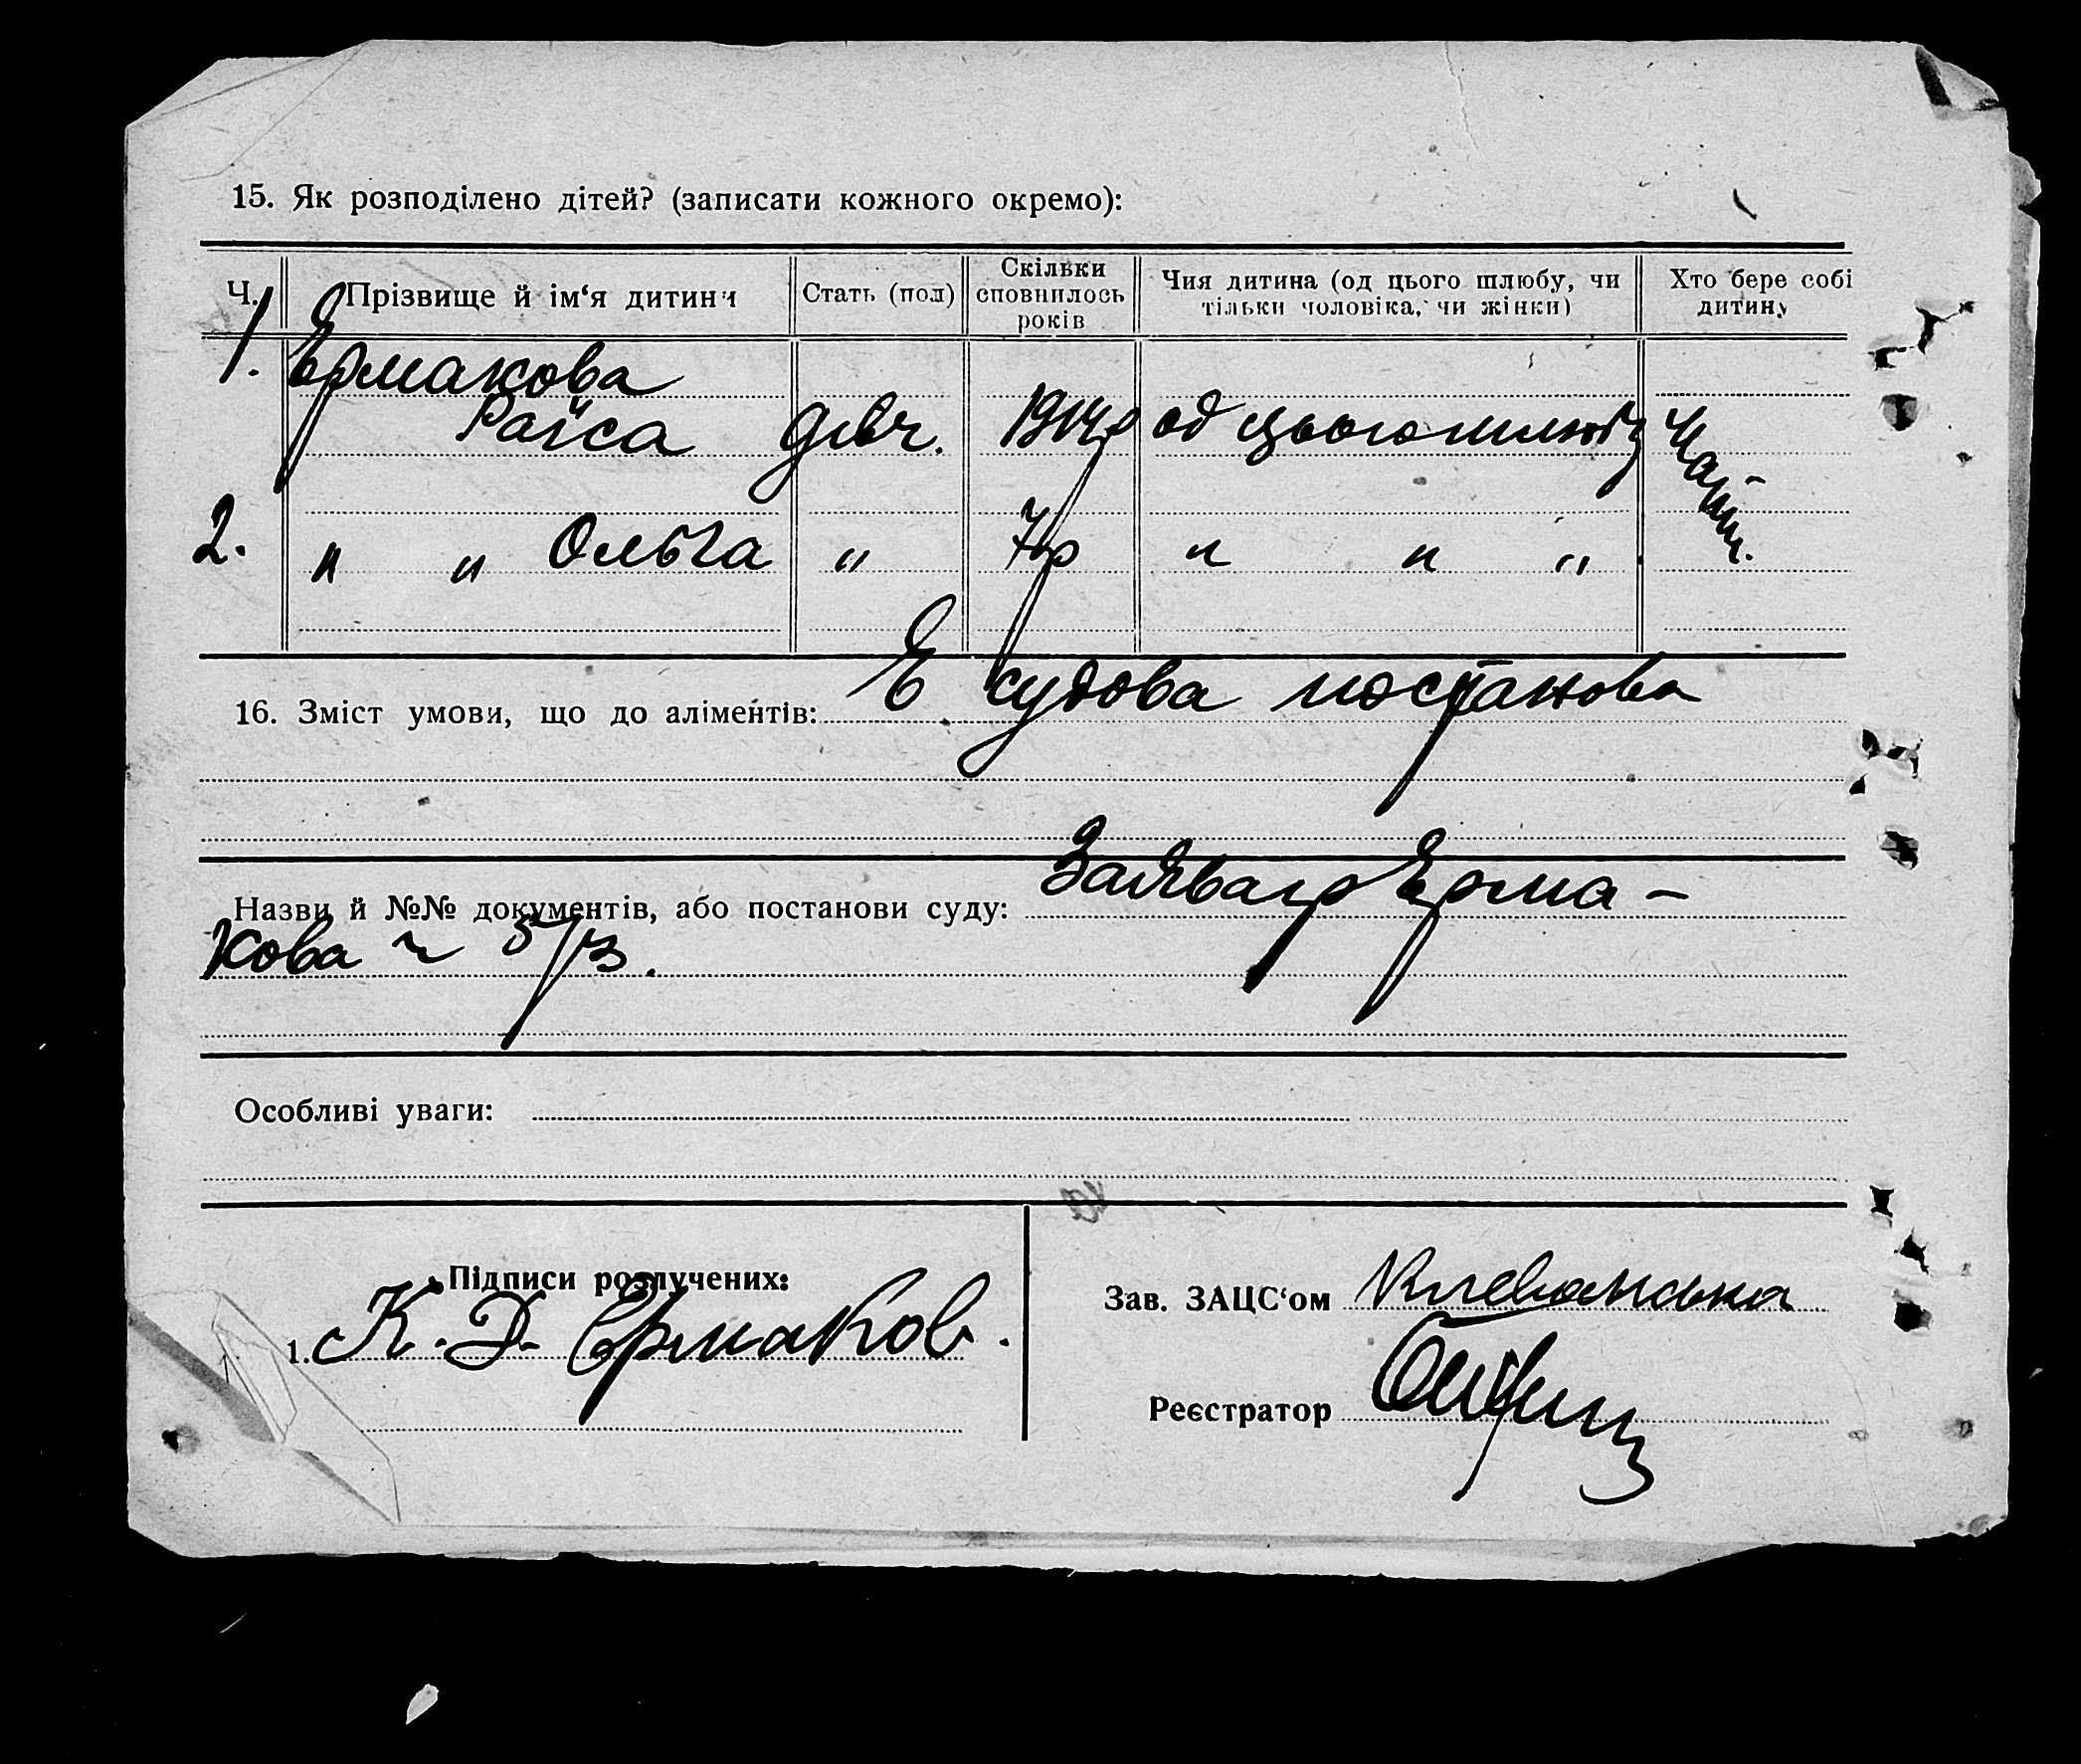 15. Як розподілено дітей? (записати кожного окремо):
Ч. Прізвище й ім‘я дитини Стать (пол) Скільки сповнилось років Чия дитина (од цього шлюбу, чи тільки чоловіка, чи жінки) Хто бере собі дитину
1. Єрмакова
Раїса дівч. од цього шлюбу
2. " " Ольга " 7 р " " "
16. Зміст умови, що до аліментів: Є судова постанова
Назви й №№ документів, або постанови суду: Єрма-
кова
Особливі уваги:
Підписи розлучених:
1. К. Д. Єрмаков.
Зав. ЗАЦС‘ом Клеванська
Реєстратор